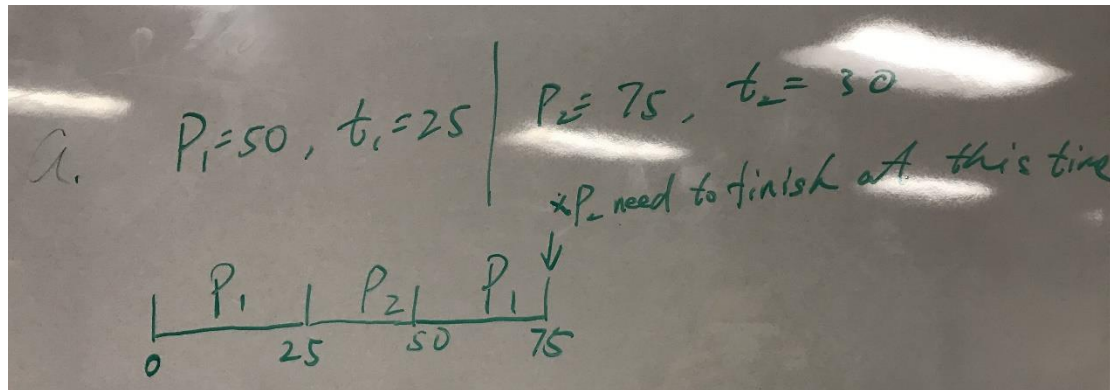 a. P₁=50, t₁=25 | P₂= 75, t₂= 30
*P₂ need to finish at this time
P₁ P₂ P₁
0 25 50 75